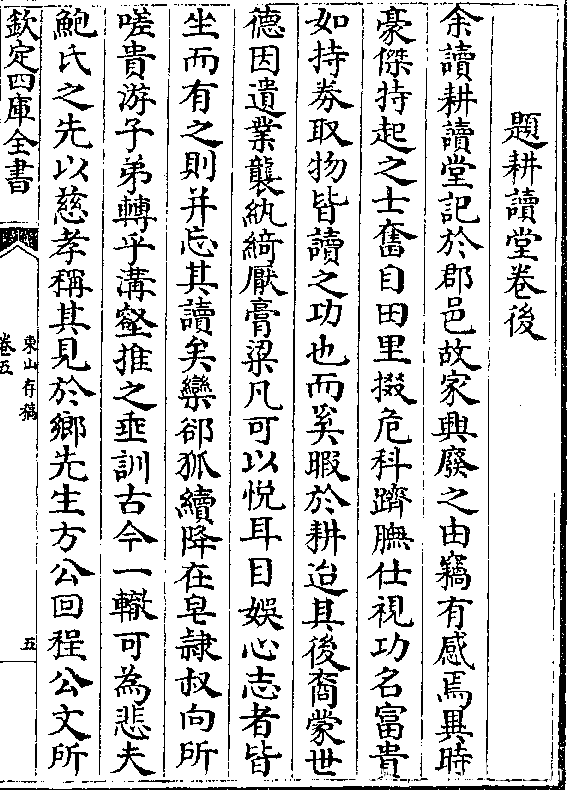 題耕讀堂卷後
余讀耕讀堂記於郡邑故家興廢之由竊有感焉異時
豪傑持起之士奮自田里掇危科躋膴仕視功名富貴
如持券取物皆讀之功也而奚暇於耕迨其後裔蒙世
德因遺業襲紈綺厭膏粱凡可以悅耳目娛心志者皆
坐而有之則并忘其讀矣欒郤狐續降在皂隷叔向所
嗟貴游子弟轉乎溝壑推之垂訓古今一轍可為悲夫
鮑氏之先以慈孝稱其見於鄉先生方公回程公文所
欽定四庫全書
東山存稿
卷五
五